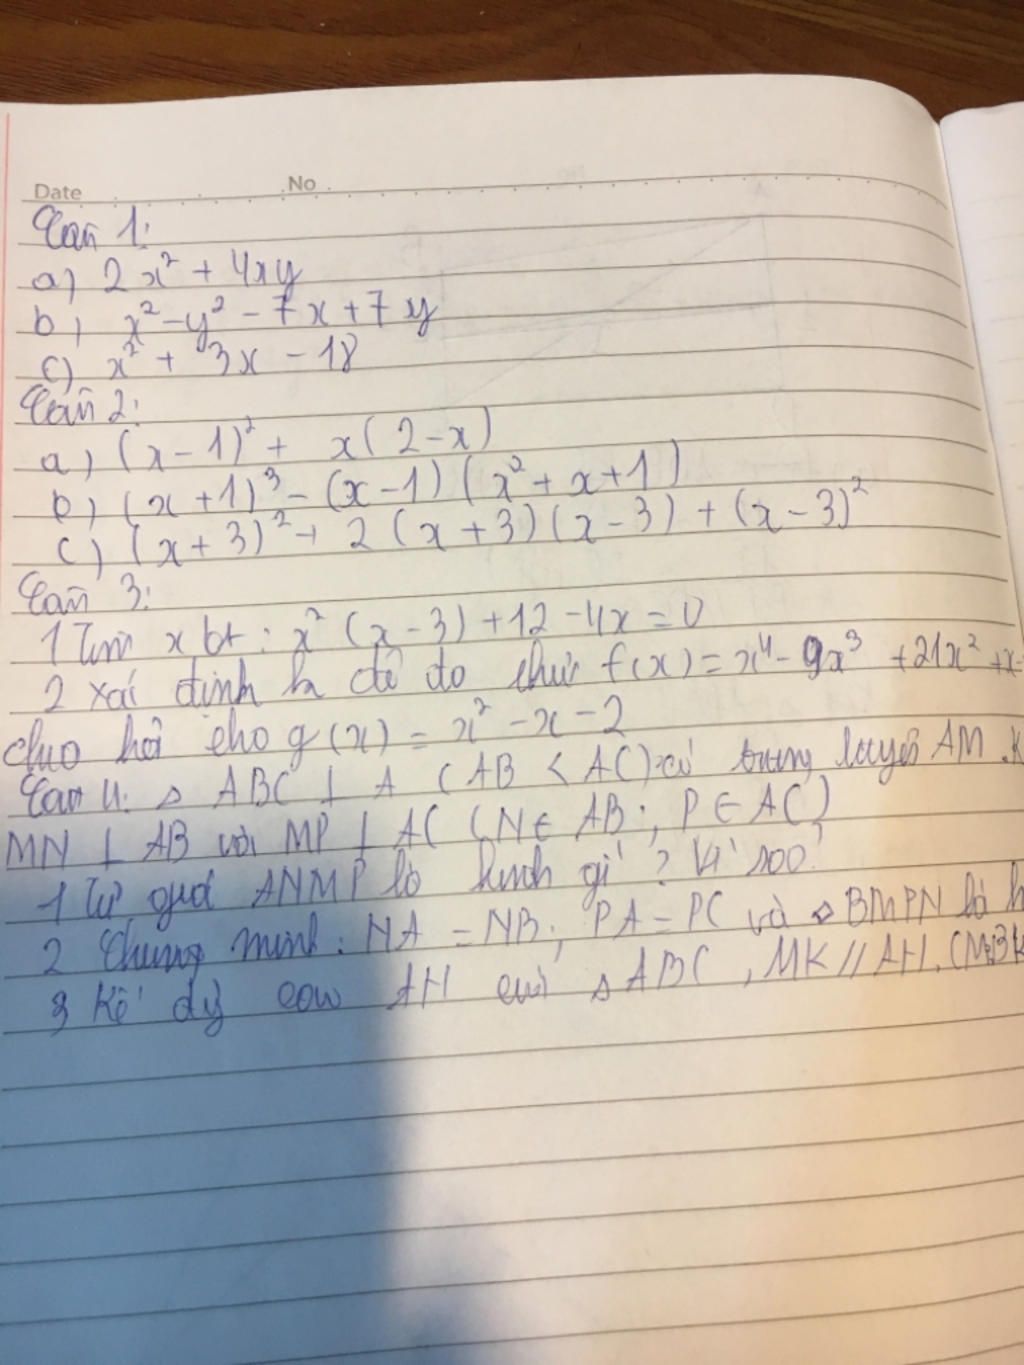 Date No
Câu 1:
a) 2x² + 4xy
b) x² - y² - 7x + 7y
c) x² + 3x - 18
Câu 2:
a) (x - 1)² + x(2 - x)
b) (x + 1)³ - (x - 1)(x² + x + 1)
c) (x + 3)² + 2(x + 3)(x - 3) + (x - 3)²
Câu 3:
1 Tìm x bt : x² (x - 3) + 12 - 4x = 0
2 xác định để đa thức f(x) = x⁴ - 9x³ + 21x² + x
cho g(x) = x² - x - 2
Câu 4: △ ABC ⊥ A (AB < AC) có trung tuyến AM. K
MN ⊥ AB và MP ⊥ AC (N ∈ AB; P ∈ AC)
1 Tứ giác ANMP là hình gì ? Vì sao?
2 Chứng minh: NA = NB; PA = PC và BMPN là h
3 Kẻ đg cao AH của △ ABC, MK // AH.